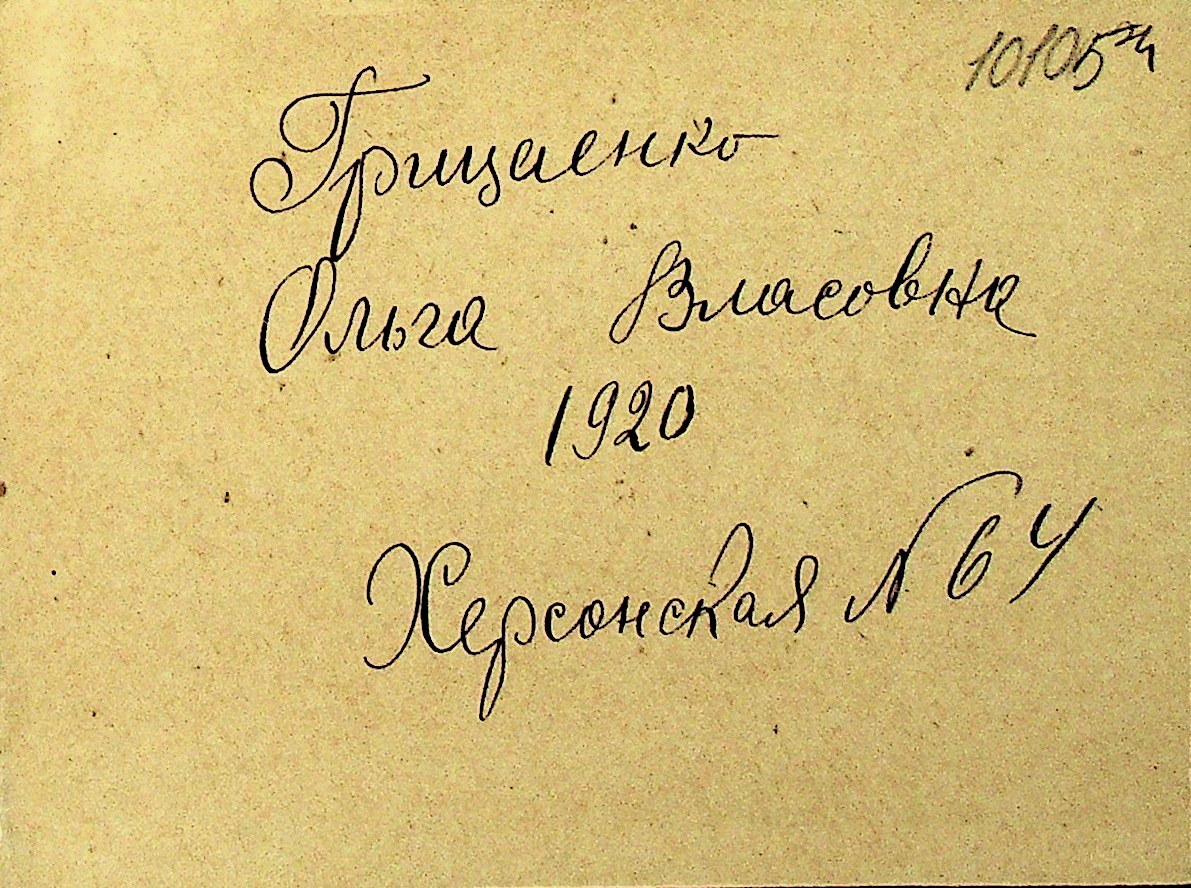 10105
Грицаенко
Ольга Власовна
1920
Херсонская N 64